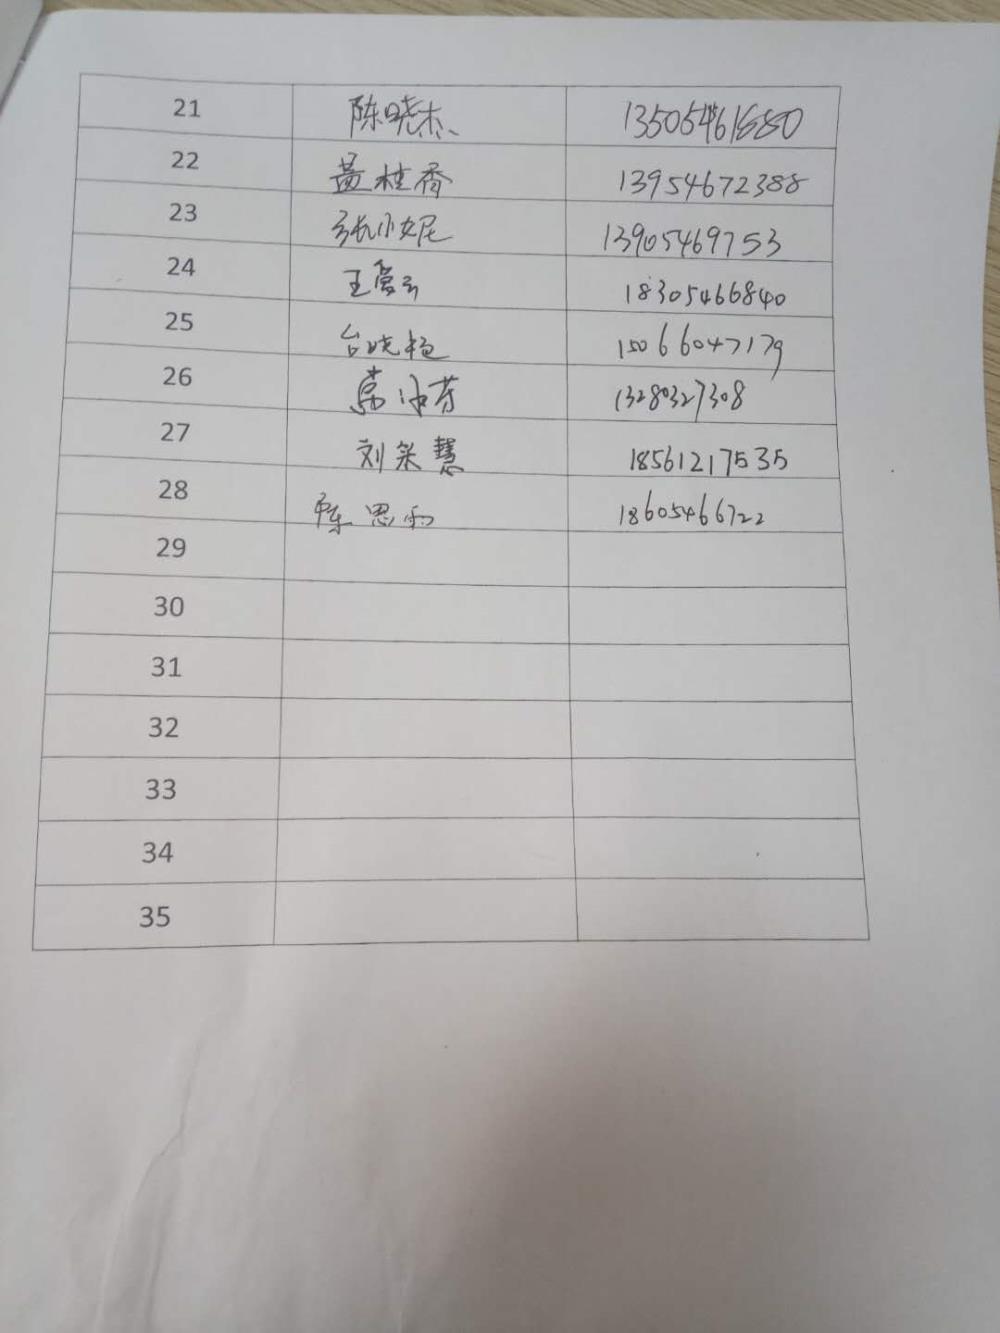 21 陈晓杰 13505461680
22 黄桂香 13954672388
23 张小妮 13905469753
24 王爱云 18305466840
25 台晓艳 15066047179
26 高淑芳 13280327308
27 刘笑慧 18561217535
28 陈思雨 18605466722
29
30
31
32
33
34
35